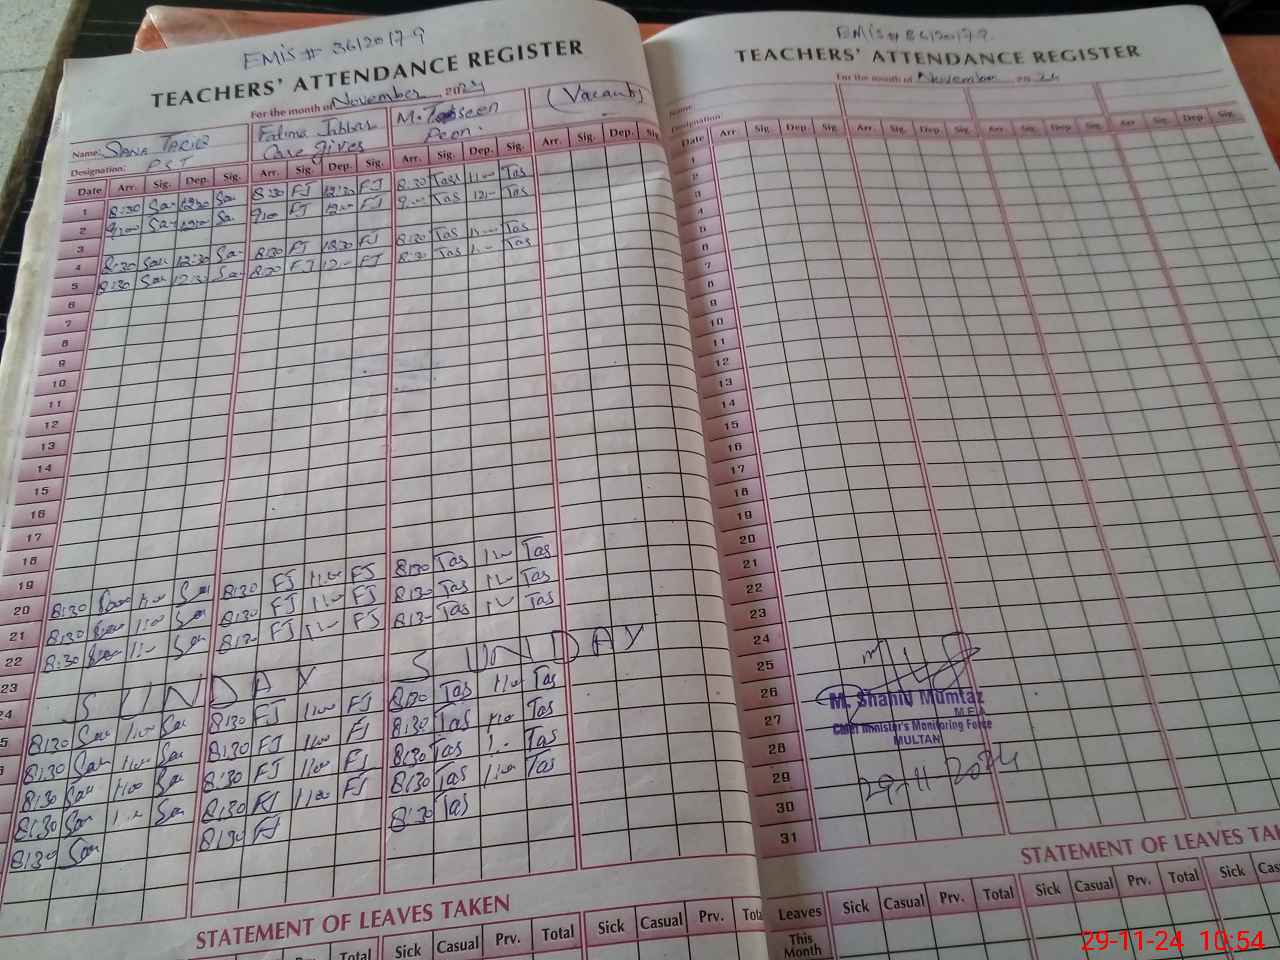 EMIS # 36120179
TEACHERS' ATTENDANCE REGISTER
For the month of November 2024
Name: SANA TARIQ Fatima Jabbar M. Tahseen (Vacant)
Designation: PST Care gives Peon.
Date Arr. Sig. Dep. Sig. Arr. Sig. Dep. Sig. Arr. Sig. Dep. Sig. Arr. Sig. Dep. Sig.
1 8:30 San 12:30 Sa 8:30 FJ 12:30 FJ 8:30 Tas 11:00 Tas
2 9:00 Sa 12:00 Sa 9:00 FJ 12:00 FJ 9:00 Tas 12:00 Tas
3
4 8:30 San 12:30 Sa 8:30 FJ FJ 8:30 Tas Tas
5 8:30 San 12:30 Sa 8:30 FJ 12:00 FJ 8:30 Tas Tas
6
7
8
9
10
11
12
13
14
15
16
17
18
19
20 8:30 San 11:00 San 8:30 FJ 11:00 FJ 8:30 Tas 11:00 Tas
21 8:30 San 11:00 San 8:30 FJ 11:00 FJ 8:30 Tas 11:00 Tas
22 8:30 San 11:00 San 8:30 FJ 11:00 FJ 8:30 Tas 11:00 Tas
23
24 SUNDAY SUNDAY
5 8:30 San 11:00 San 8:30 FJ 11:00 FJ 8:30 Tas 11:00 Tas
8:30 San 11:00 San 8:30 FJ 11:00 FJ 8:30 Tas 11:00 Tas
8:30 San 11:00 San 8:30 FJ 11:00 FJ 8:30 Tas Tas
8:30 San San 8:30 FJ 11:00 FJ 8:30 Tas 11:00 Tas
8:30 San 8:30 FJ 8:30 Tas
STATEMENT OF LEAVES TAKEN
Sick Casual Prv. Total Sick Casual Prv.
EMIS # 36120179
TEACHERS' ATTENDANCE REGISTER
For the month of November 2024
Name:
Designation:
Date Arr. Sig. Dep. Sig. Arr. Sig. Dep. Sig. Arr. Sig. Dep. Sig. Arr. Sig. Dep. Sig.
1
2
3
4
5
6
7
8
9
10
11
12
13
14
15
16
17
18
19
20
21
22
23
24
25
26
27
28
29
30
31
M. Shahid Mumtaz
M.E.A
Chief Minister's Monitoring Force
MULTAN
29-11-2024
STATEMENT OF LEAVES TA
Leaves Sick Casual Prv. Total Sick Casual Prv. Total Sick Cas
This Month
29-11-24 10:54